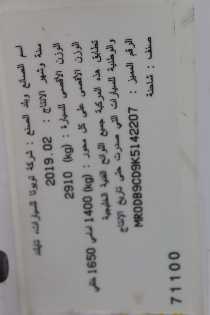 اسم الصانع وبلد الصنع : شركة تويوتا للسيارات، تايلاند
سنة وشهر الانتاج : 2019.02
الوزن الاقصى للسيارة : (kg) 2910
الوزن الاقصى على كل محور : (kg) 1400 امامي 1650 خلفي
تطابق هذه المركبة جميع اللوائح الفنية الخليجية
والوطنية للسيارات التي صدرت حتى تاريخ الانتاج
الرقم المميز : MR0DB9CD9K5142207
صنف : شاحنة
71100